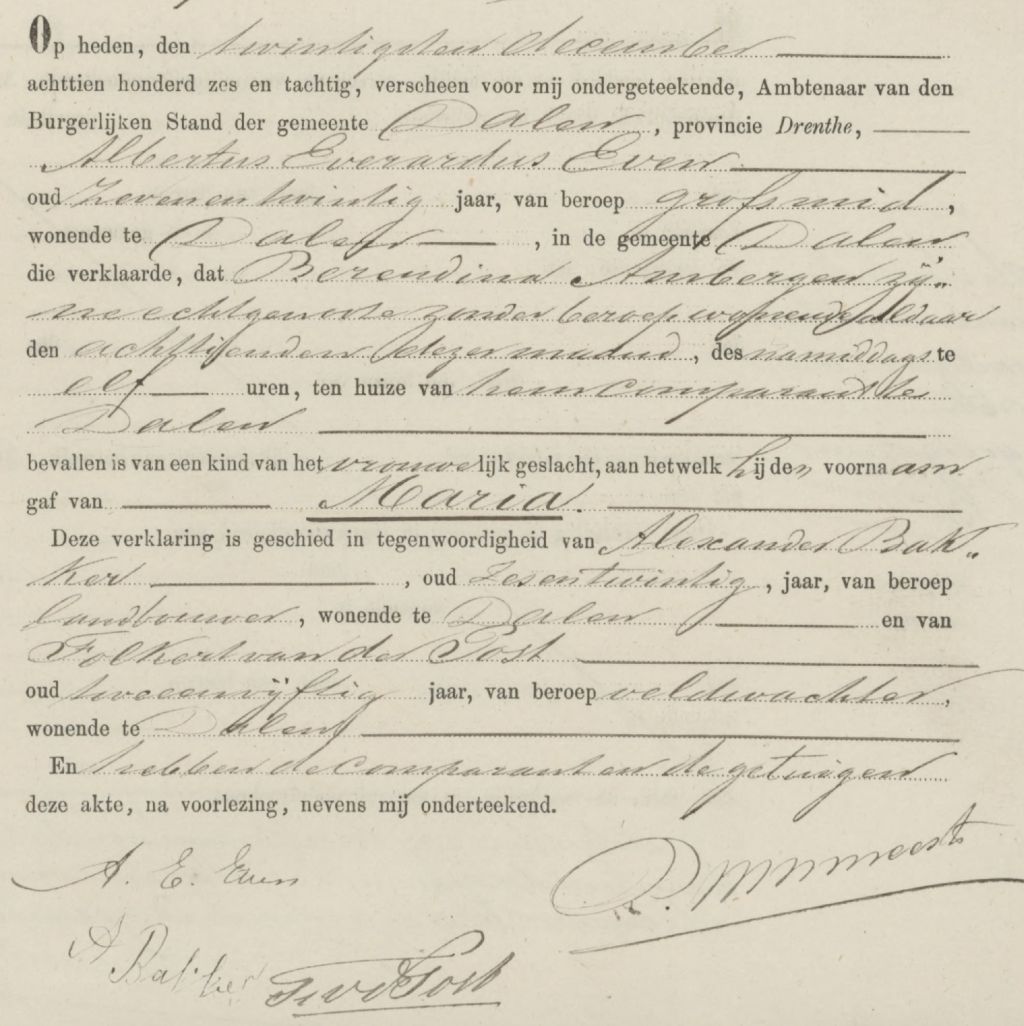 Op heden, den twintigsten december
achttien honderd zes en tachtig, verscheen voor mij ondergeteekende, Ambtenaar van den
Burgerlijken Stand der gemeente Dalen, provincie Drenthe,
Albertus Everardus Even
oud zevenentwintig jaar, van beroep grofsmid,
wonende te Dalen, in de gemeente Dalen
die verklaarde, dat Berendina Ambergen zij„
ne echtgenoote zonder beroep wonende aldaar
den achttienden dezer maand, des namiddags te
elf uren, ten huize van hem comparant te
Dalen
bevallen is van een kind van het vrouwelijk geslacht, aan hetwelk hij den voornaam
gaf van Maria.
Deze verklaring is geschied in tegenwoordigheid van Alexander Bak„
ker, oud zesentwintig, jaar, van beroep
landbouwer, wonende te Dalen en van
Folkert van der Tost
oud tweeenvijftig jaar, van beroep veldwachter,
wonende te Dalen
En hebben de comparant en de getuigen
deze akte, na voorlezing, nevens mij onderteekend.
A. E. Even
A Bakker
F. v d Tost